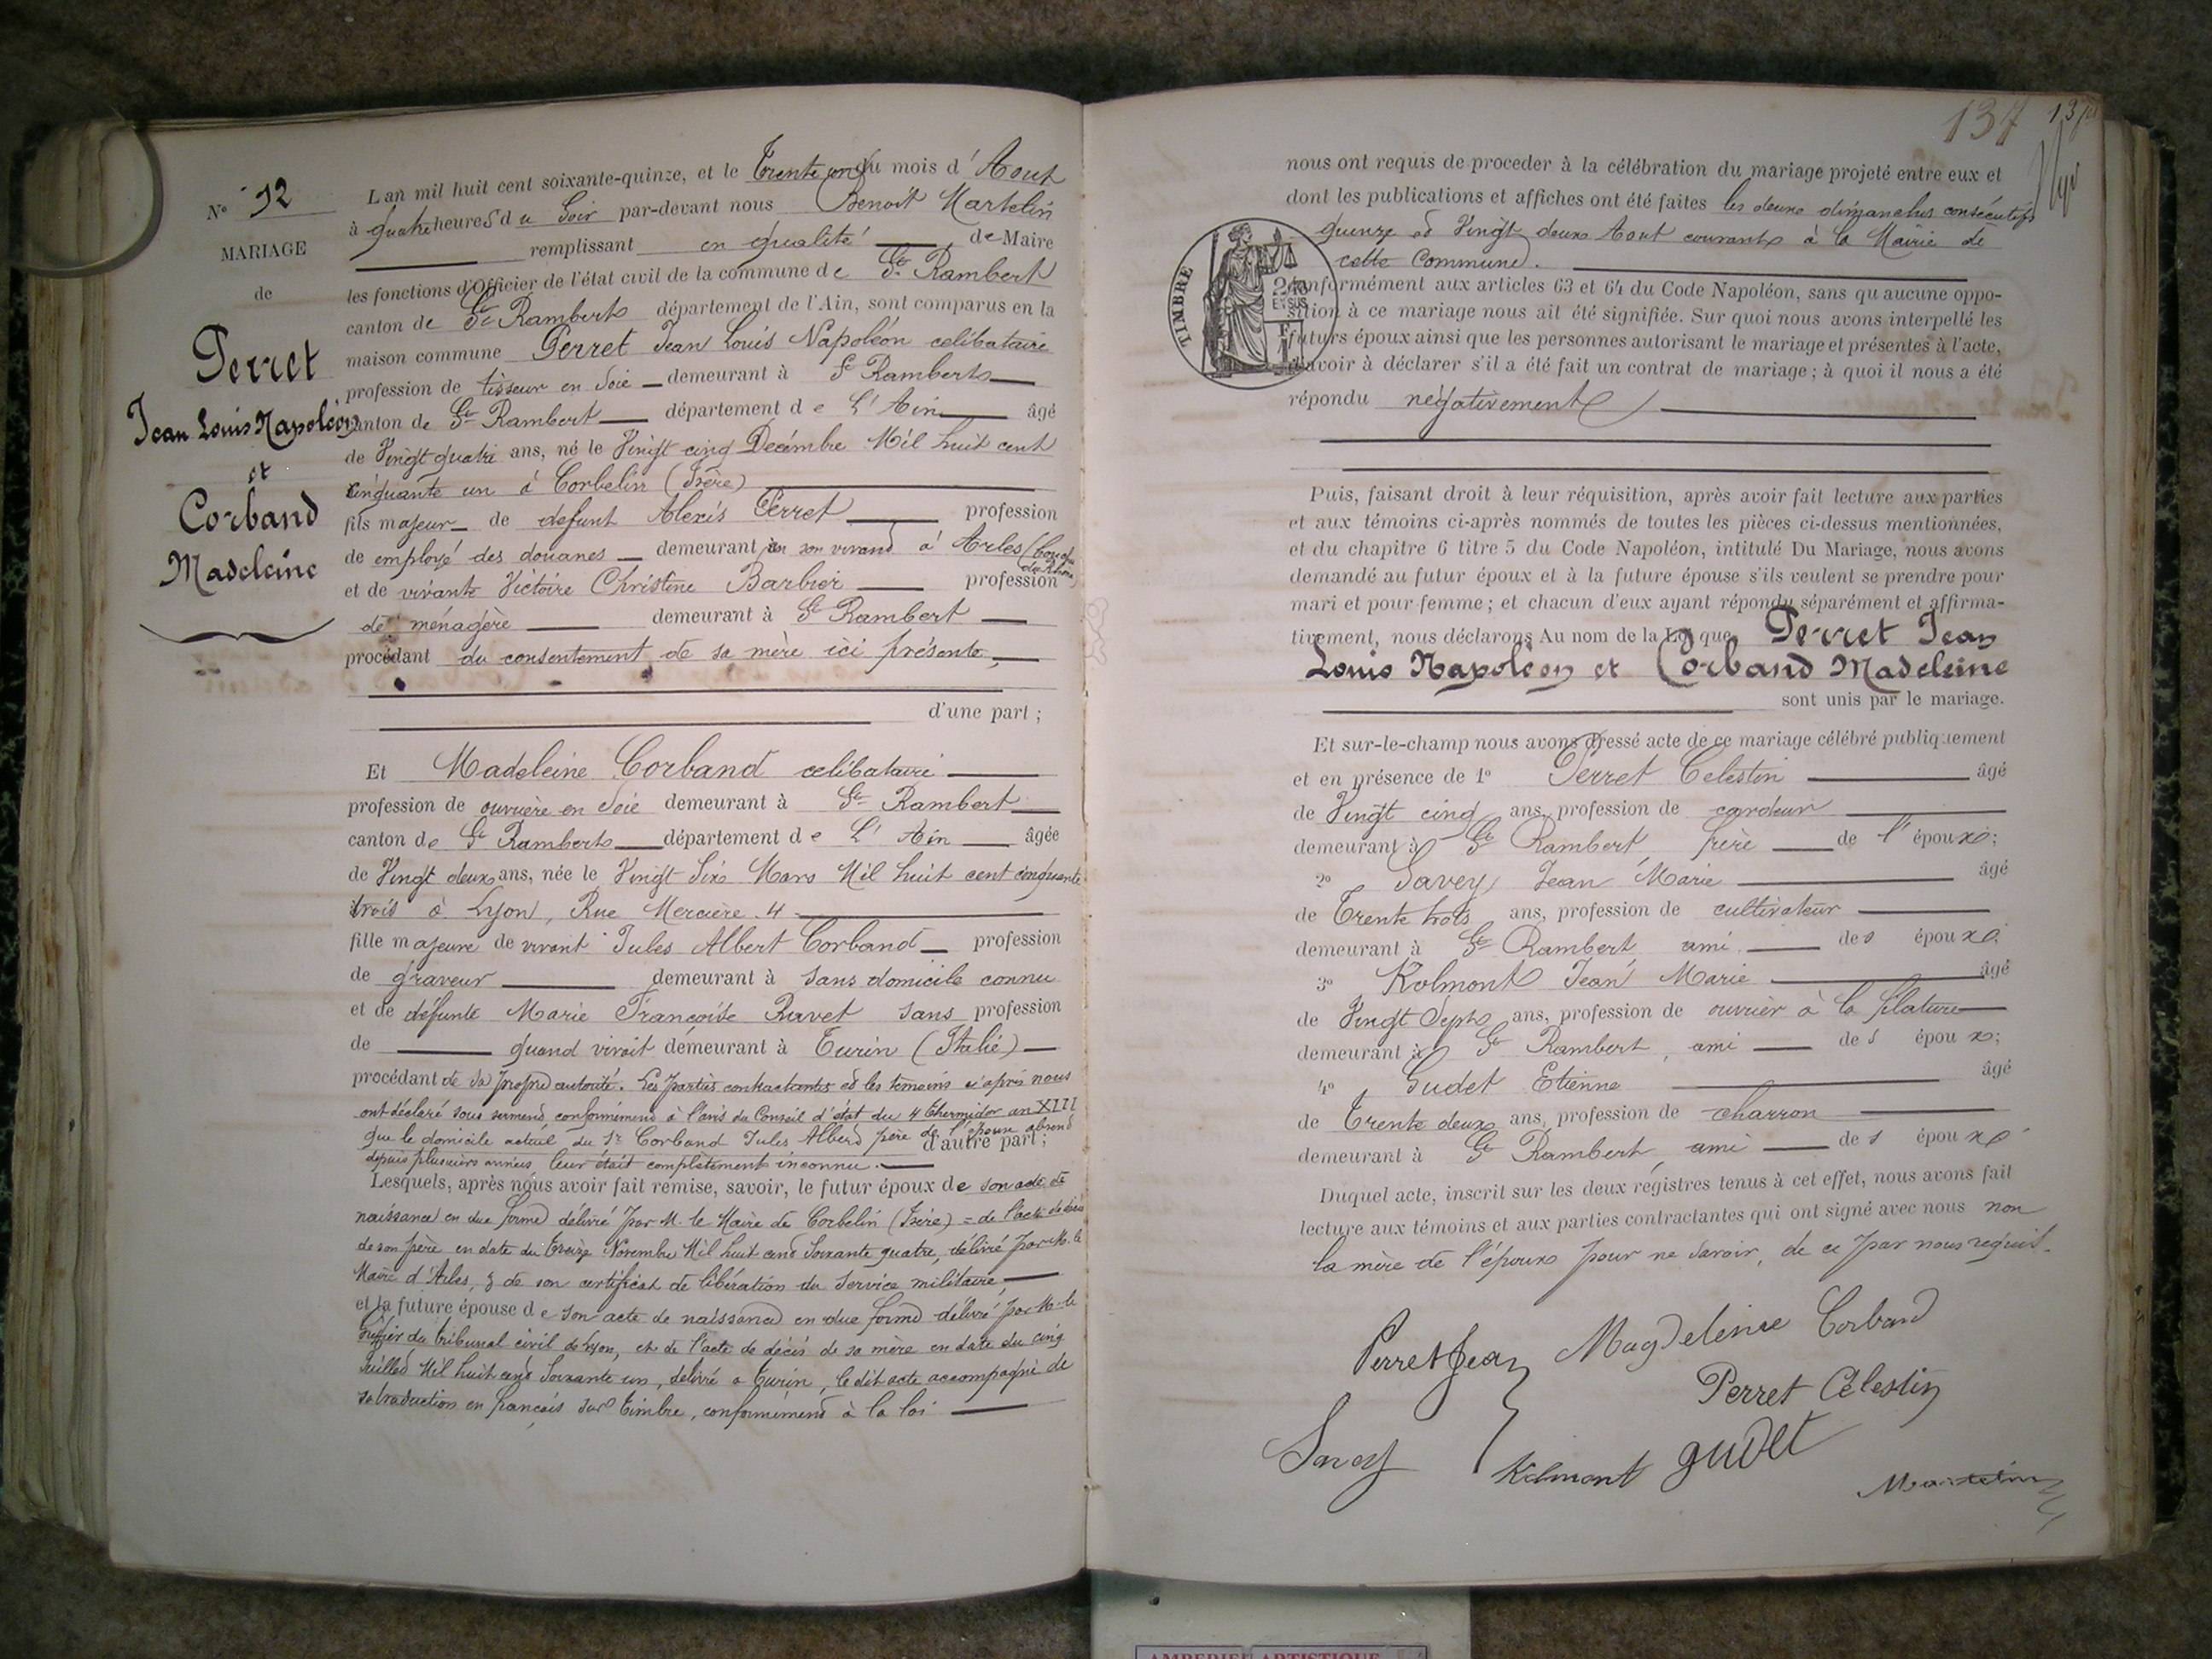 No 12
MARIAGE
de
Perret
Jean Louis Napoléon
et
Corband
Madeleine
L'an mil huit cent soixante-quinze, et le Trente un du mois d'Aout
à quatre heures du Soir par-devant nous Benoit Martelin
remplissant en qualité de Maire
les fonctions d'Officier de l'état civil de la commune de St Rambert
canton de St Rambert département de l'Ain, sont comparus en la
maison commune Perret Jean Louis Napoléon celibataire
profession de tisseur en Soie demeurant à St Rambert
canton de St Rambert département de L'Ain âgé
de Vingt quatre ans, né le Vingt cinq Decémbre Mil huit cent
cinquante un à Corbelin (Isère)
fils majeur de defunt Alexis Perret profession
de employé des douanes demeurant en son vivant à Arles (Bouches
du Rhone)
et de vivante Victoire Christine Barbier profession
de ménagère demeurant à St Rambert
procédant du consentement de sa mère ici présente,
d'une part ;
Et Madeleine Corband celibataire
profession de ouvrière en Soie demeurant à St Rambert
canton de St Rambert département de L'Ain âgée
de Vingt deux ans, née le Vingt Six Mars Mil huit cent cinquante
trois à Lyon, Rue Mercière 4
fille majeure de vivant Jules Albert Corband profession
de graveur demeurant à sans domicile connu
et de défunte Marie Françoise Ravet sans profession
de quand vivait demeurant à Turin (Italie)
procédant de sa propre autorité. Les parties contractantes et les temoins ci après nous
ont déclaré sous serment conformément à l'avis du Conseil d'état du 4 Thermidor an XIII
que le domicile actuel du Sr Corband Jules Albert père de l'épouse absent
d'autre part ;
depuis plusieurs années leur était complètement inconnu.
Lesquels, après nous avoir fait remise, savoir, le futur époux de son acte de
naissance en due forme délivré par M. le Maire de Corbelin (Isère) = de l'acte de décès
de son père en date du treize Novembre Mil huit cent Soixante quatre, délivré par M. le
Maire d'Arles, & de son certificat de libération du Service militaire,
et la future épouse de son acte de naissance en due forme délivré par M. le
Greffier du tribunal civil de Lyon, et de l'acte de décès de sa mère en date du cinq
Juillet Mil huit cent Soixante un, délivré à Turin, le dit acte accompagné de
sa traduction en français sur timbre, conformément à la loi
137
nous ont requis de proceder à la célébration du mariage projeté entre eux et
dont les publications et affiches ont été faites les deux dimanches consécutifs
quinze et Vingt deux Aout courant à la Mairie de
cette Commune.
TIMBRE
conformément aux articles 63 et 64 du Code Napoléon, sans qu'aucune oppo-
sition à ce mariage nous ait été signifiée. Sur quoi nous avons interpellé les
futurs époux ainsi que les personnes autorisant le mariage et présentes à l'acte,
d'avoir à déclarer s'il a été fait un contrat de mariage ; à quoi il nous a été
répondu négativement
Puis, faisant droit à leur réquisition, après avoir fait lecture aux parties
et aux témoins ci-après nommés de toutes les pièces ci-dessus mentionnées,
et du chapitre 6 titre 5 du Code Napoléon, intitulé Du Mariage, nous avons
demandé au futur époux et à la future épouse s'ils veulent se prendre pour
mari et pour femme ; et chacun d'eux ayant répondu séparément et affirma-
tivement, nous déclarons Au nom de la Loi que Perret Jean
Louis Napoléon et Corband Madeleine
sont unis par le mariage.
Et sur-le-champ nous avons dressé acte de ce mariage célébré publiquement
et en présence de 1o Perret Celestin âgé
de Vingt cinq ans, profession de cardeur
demeurant à St Rambert frère de l'époux ;
2o Savey Jean Marie âgé
de Trente trois ans, profession de cultivateur
demeurant à St Rambert ami des époux
3o Kolmont Jean Marie âgé
de Vingt Sept ans, profession de ouvrier à la filature
demeurant à St Rambert, ami des époux ;
4o Gudet Etienne âgé
de Trente deux ans, profession de charron
demeurant à St Rambert, ami des époux
Duquel acte, inscrit sur les deux régistres tenus à cet effet, nous avons fait
lecture aux témoins et aux parties contractantes qui ont signé avec nous non
la mère de l'époux pour ne savoir, de ce par nous requit.
Perret Jean Magdeleine Corband
Perret Célestin
Savey Kolmont gudet
Martelin
AMBERIEU ARTISTIQUE